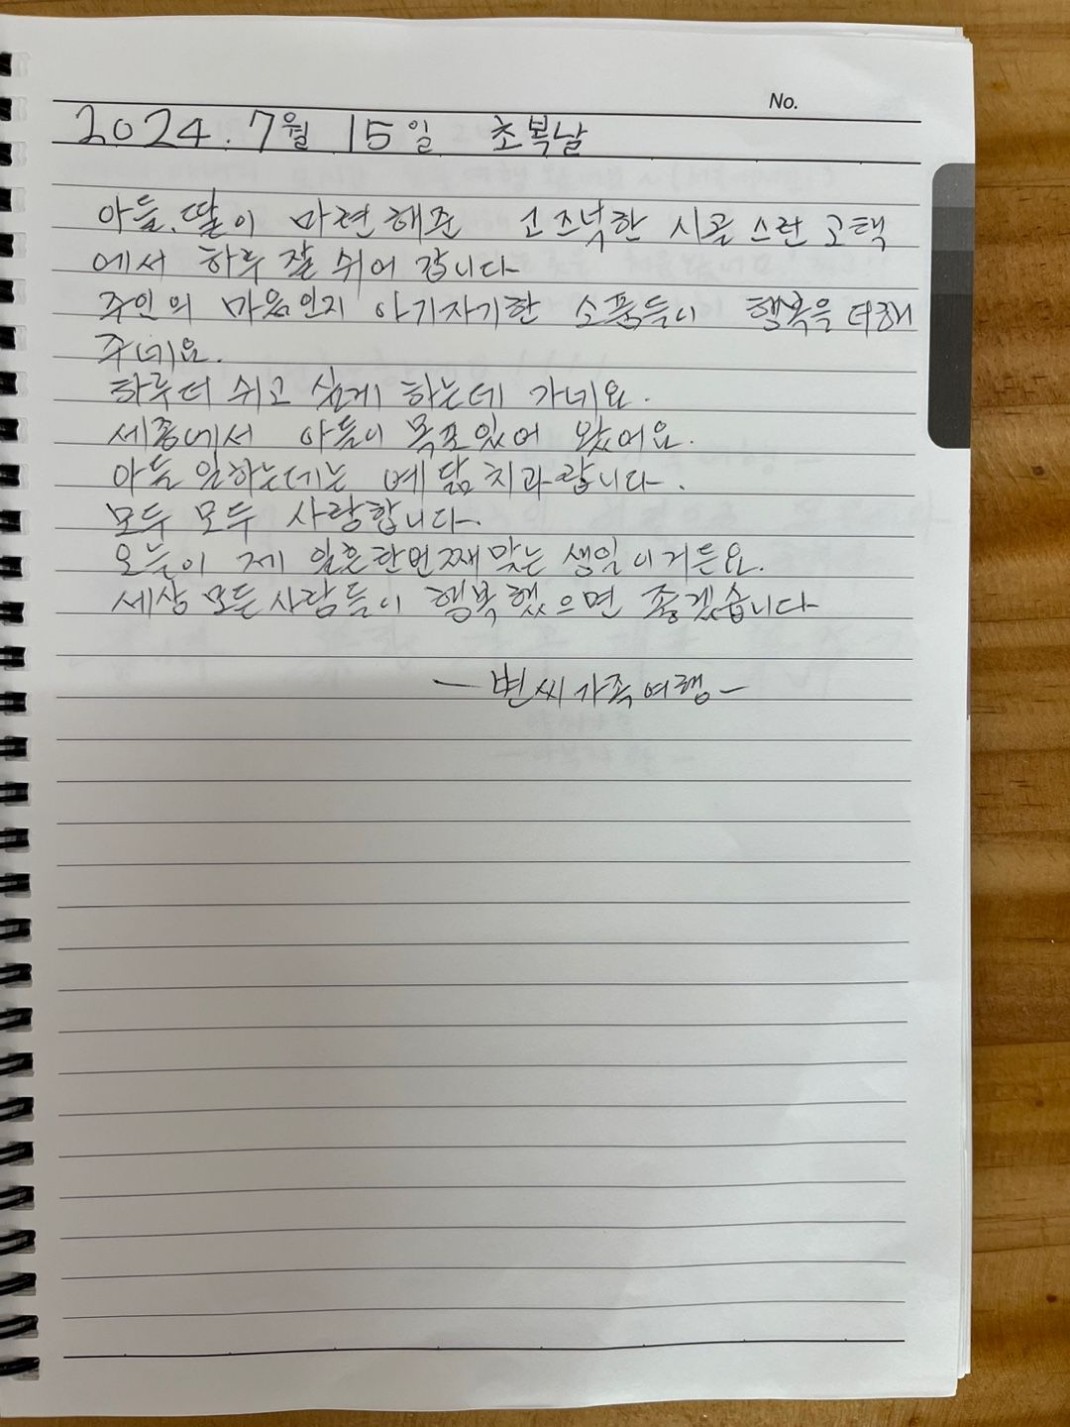 No.
2024. 7월 15일 초복날
아들, 딸이 마련해준 고즈넉한 시골스런 고택
에서 하루 잘 쉬어 갑니다
주인의 마음인지 아기자기한 소품들이 행복을 더해
주네요.
하루더 쉬고 싶게 하는데 가네요.
세종에서 아들이 목포있어 왔어요.
아들 일하는데는 예닮치과랍니다.
모두 모두 사랑합니다.
오늘이 제 일흔한번째 맞는 생일이거든요.
세상 모든 사람들이 행복했으면 좋겠습니다
- 변씨가족여행 -